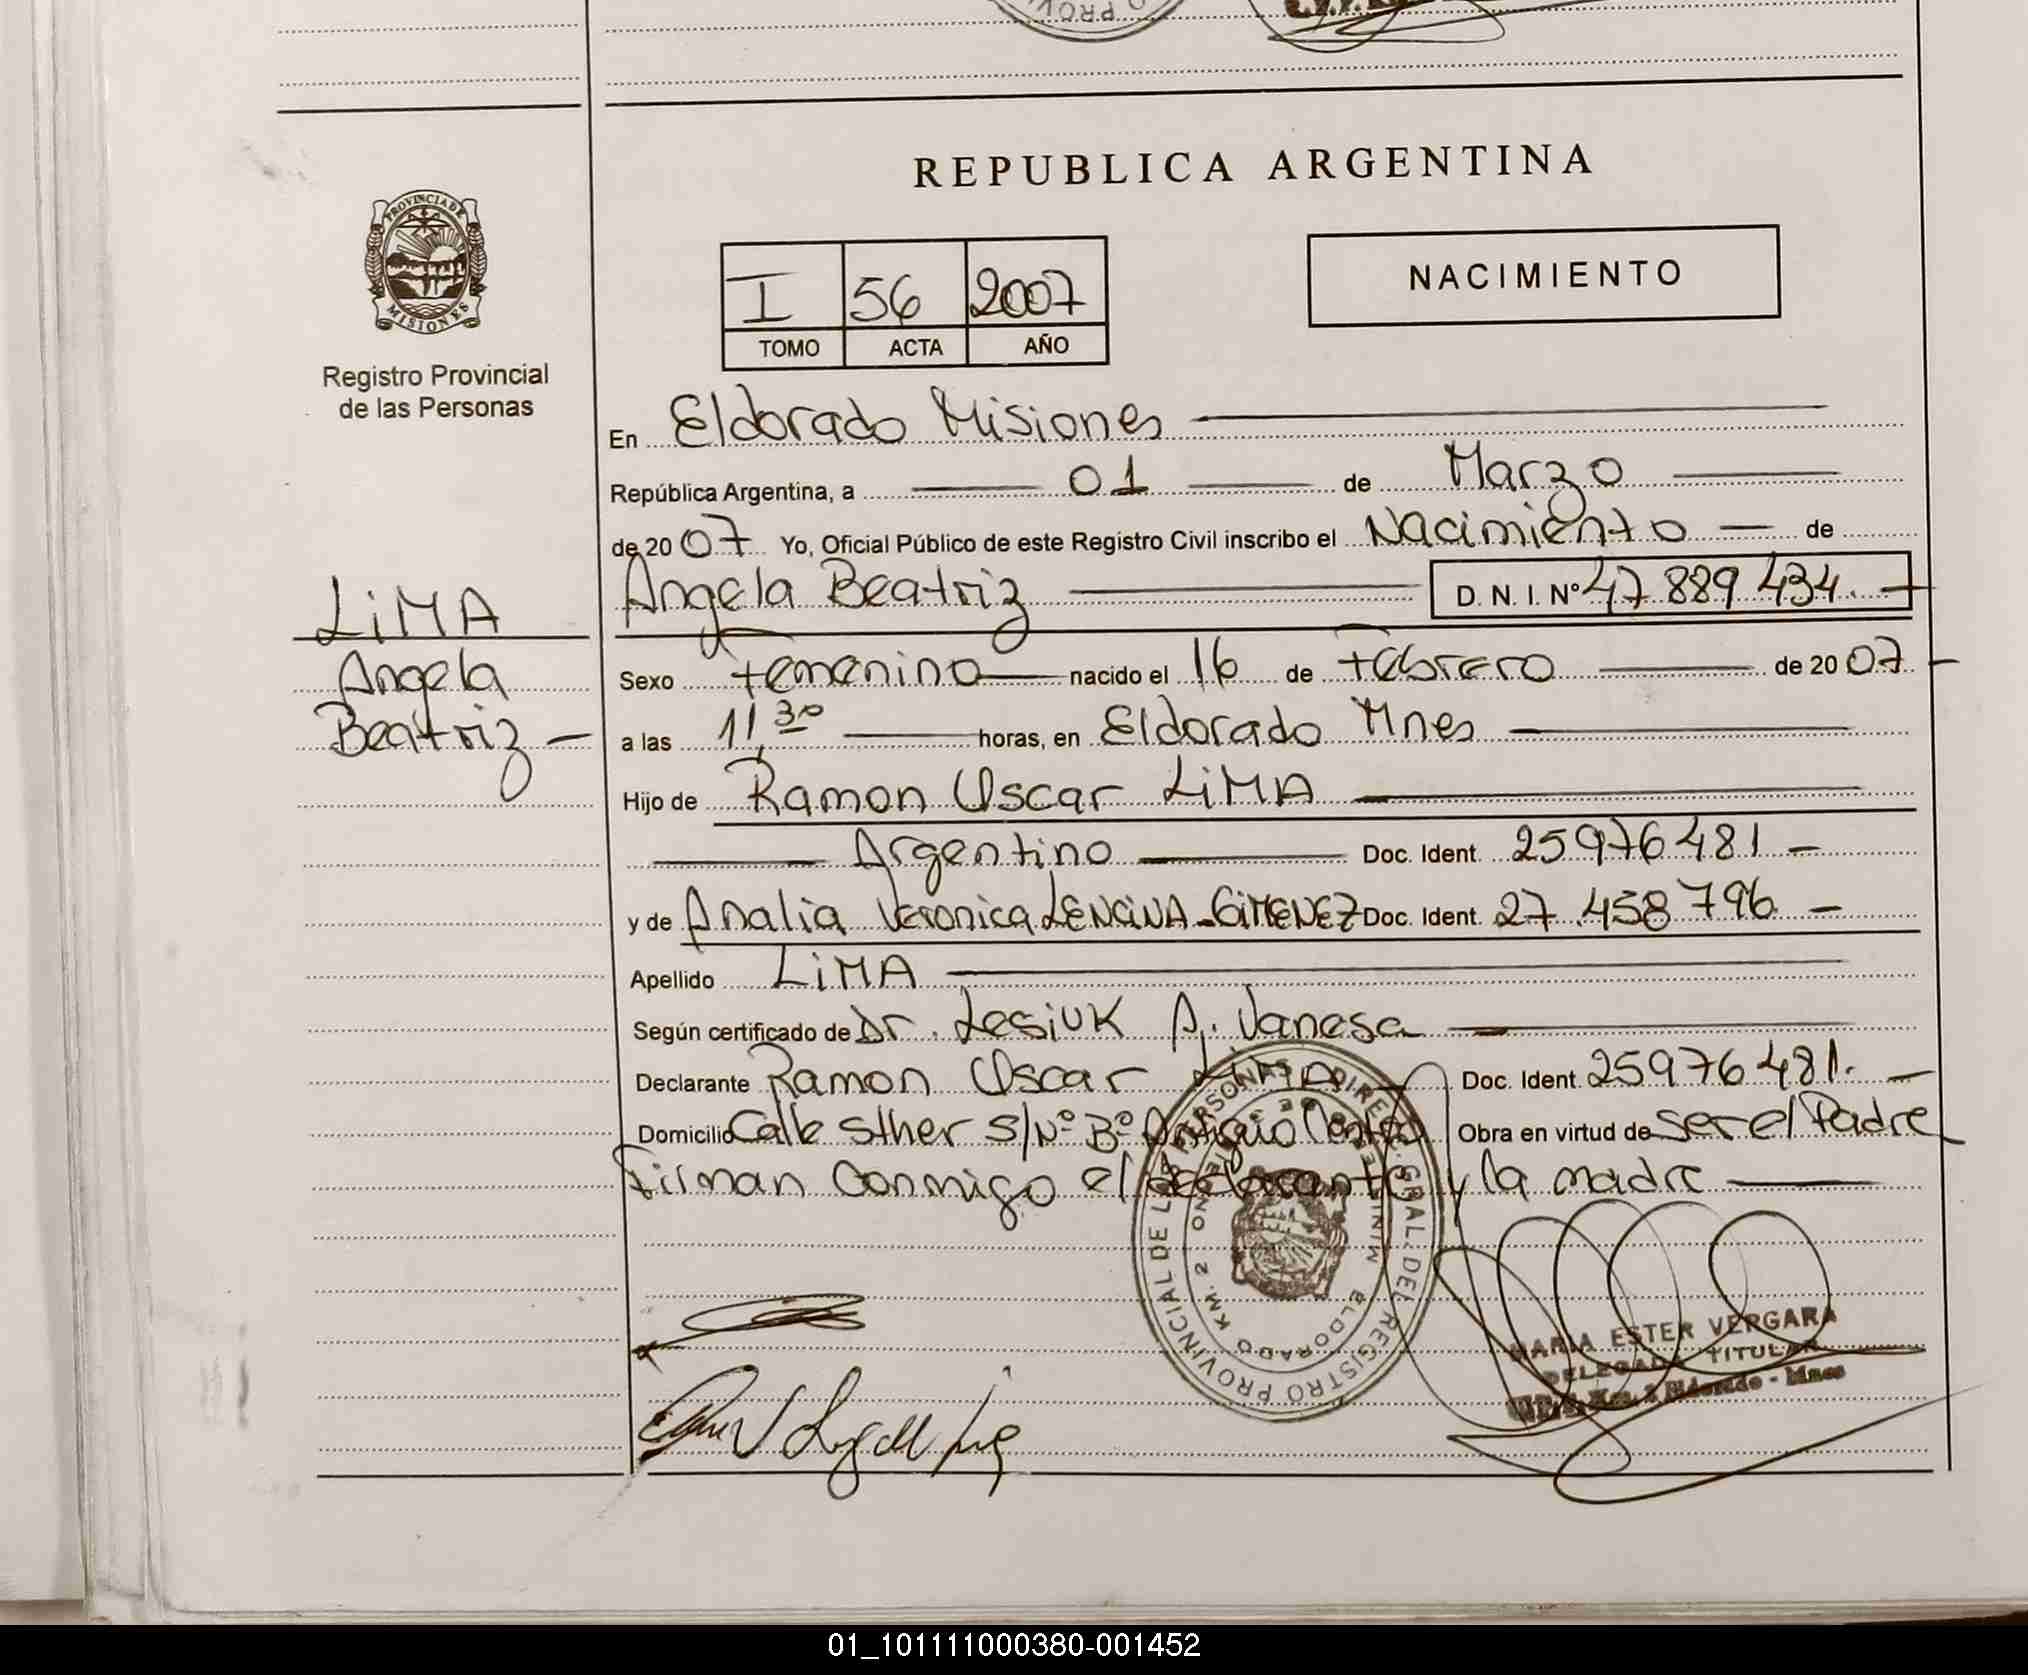 REPUBLICA ARGENTINA
PROVINCIA DE
MISIONES
Registro Provincial
de las Personas
I 56 2007
TOMO ACTA AÑO
NACIMIENTO
En Eldorado Misiones
República Argentina, a 01 de Marzo
de 2007 Yo, Oficial Público de este Registro Civil inscribo el Nacimiento de
Angela Beatriz D. N. I. Nº 47 889 434.
LiMA
Angela
Beatriz
Sexo femenino nacido el 16 de Febrero de 2007
a las 11,30 horas, en Eldorado Mnes
Hijo de Ramon Oscar LiMA
Argentino Doc. Ident. 25976481
y de Analia Veronica LENCiNA-GiMENEZ Doc. Ident. 27.458796
Apellido LiMA
Según certificado de Dr. Lesiuk A. Vanesa
Declarante Ramon Oscar LiMA Doc. Ident. 25976481.
Domicilio Calle sther s/Nº Bº Obra en virtud de ser el Padre
Firman conmigo el declarante y la madre
DIREC. GRAL. DEL REGISTRO PROVINCIAL DE LAS PERSONAS
ELDORADO KM. 2
MARIA ESTER VERGARA
DELEGADA TITULAR
Km. 2 Eldorado - Mnes
01_101111000380-001452